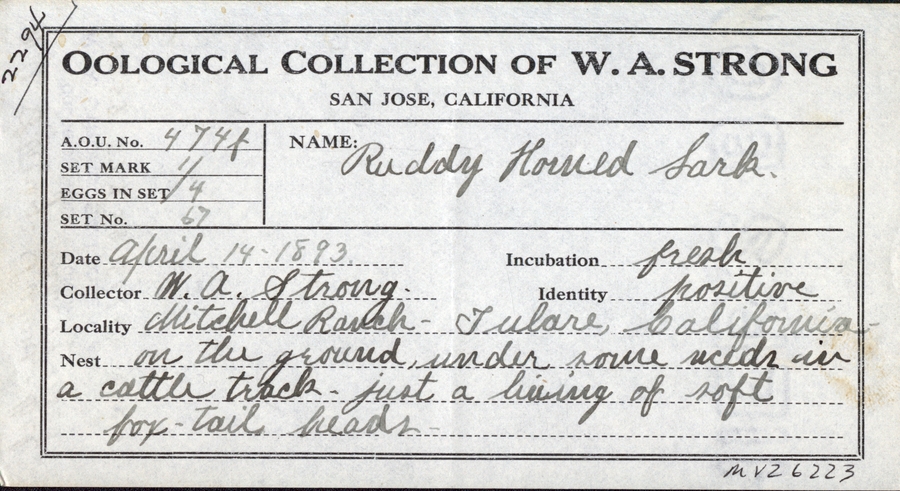 2294
OOLOGICAL COLLECTION OF W. A. STRONG
SAN JOSE, CALIFORNIA
A.O.U. No. 474f
SET MARK 1/
EGGS IN SET 4
SET No. 67
NAME: Ruddy Horned Lark.
Date April 14-1893. Incubation fresh
Collector W. A. Strong. Identity positive
Locality Mitchell Ranch - Tulare, California-
Nest on the ground, under some weeds in
a cattle track - just a lining of soft
fox-tail heads -
MVZ 6223